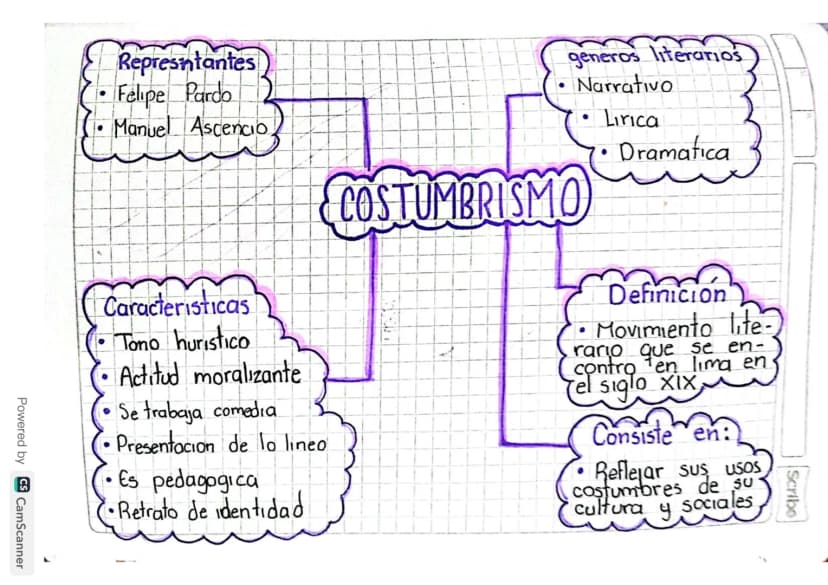 Represntantes
• Felipe Pardo
• Manuel Ascencio
generos literarios
• Narrativo
• Lirica
• Dramatica
COSTUMBRISMO
Caracteristicas
• Tono huristico
• Actitud moralizante
• Se trabaja comedia
• Presentacion de lo lineo
• Es pedagogica
• Retrato de identidad
Definición
• Movimiento lite-
rario que se en-
contro en lima en
el siglo XIX
Consiste en:
• Reflejar sus usos
costumbres de su
cultura y sociales
Scribe
Powered by CS CamScanner